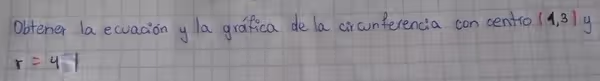 Obtener la ecuación y la gráfica de la circunferencia con centro (1,3) y
r = 4